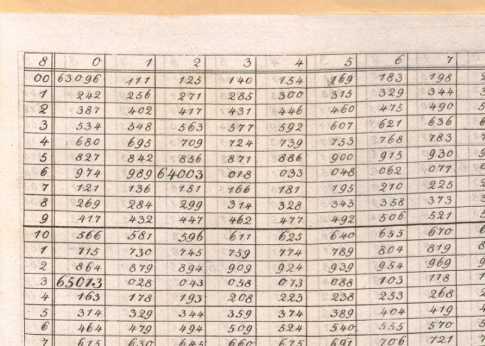 8 0 1 2 3 4 5 6 7
00 63096 111 125 140 154 169 183 198
1 242 256 271 285 300 315 329 344
2 387 402 417 431 446 460 475 490
3 534 548 563 577 592 607 621 636
4 680 695 709 724 739 753 768 783
5 827 842 856 871 886 900 915 930
6 974 989 64003 018 033 048 062 077
7 121 136 151 166 181 195 210 225
8 269 284 299 314 328 343 358 373
9 417 432 447 462 477 492 506 521
10 566 581 596 611 625 640 655 670
1 715 730 745 759 774 789 804 819
2 864 879 894 909 924 939 954 969
3 65013 028 043 058 073 088 103 118
4 163 178 193 208 223 238 253 268
5 314 329 344 359 374 389 404 419
6 464 479 494 509 524 540 555 570
7 615 630 645 660 675 691 706 721